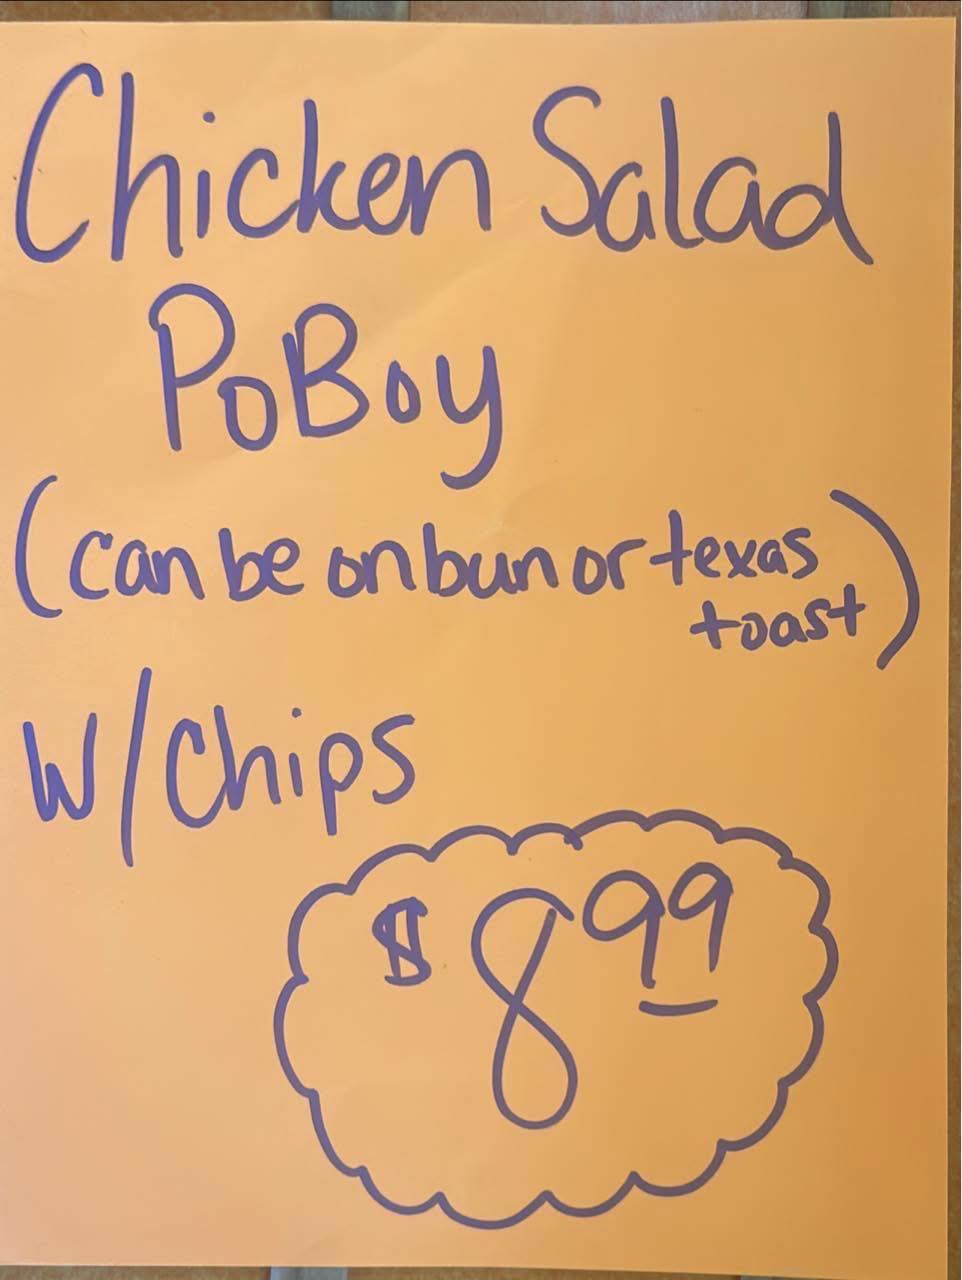 Chicken Salad
PoBoy
(can be on bun or texas
toast)
W/Chips
$8.99